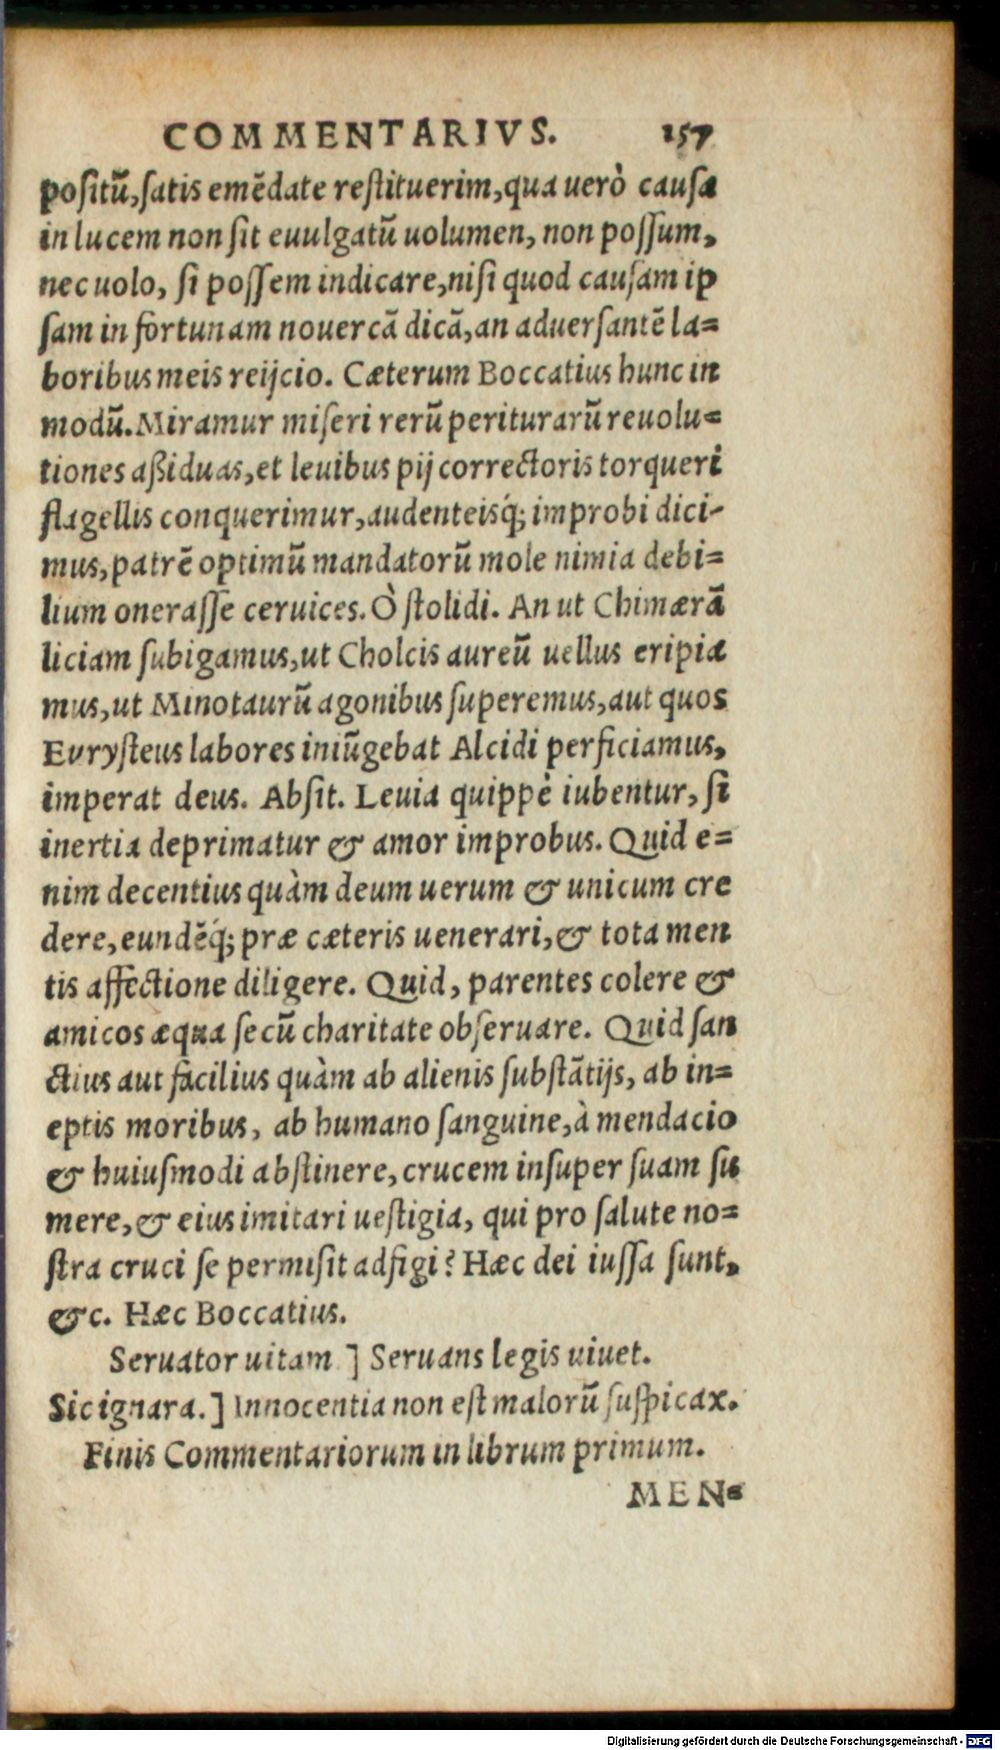 COMMENTARIVS. 157
positū, satis emēdate restituerim, qua uerò causa
in lucem non sit euulgatū uolumen, non possum,
nec uolo, si possem indicare, nisi quod causam ip
sam in fortunam nouercā dicā, an aduersantē la=
boribus meis reijcio. Cæterum Boccatius hunc in
modū. Miramur miseri rerū periturarū reuolu=
tiones aßiduas, et leuibus pij correctoris torqueri
flagellis conquerimur, audenteisq́; improbi dici-
mus, patrē optimū mandatorū mole nimia debi=
lium onerasse ceruices. Ò stolidi. An ut Chimærā
liciam subigamus, ut Cholcis aureū uellus eripia
mus, ut Minotaurū agonibus superemus, aut quos
Eurysteus labores iniūgebat Alcidi perficiamus,
imperat deus. Absit. Leuia quippè iubentur, si
inertia deprimatur & amor improbus. Quid e=
nim decentius quàm deum uerum & unicum cre
dere, eundēq́; præ cæteris uenerari, & tota men
tis affectione diligere. Quid, parentes colere &
amicos æqua secū charitate obseruare. Quid san
ctius aut facilius quàm ab alienis substātijs, ab in=
eptis moribus, ab humano sanguine, à mendacio
& huiusmodi abstinere, crucem insuper suam su
mere, & eius imitari uestigia, qui pro salute no=
stra cruci se permisit adfigi? Hæc dei iussa sunt,
&c. Hæc Boccatius.
Seruator uitam ] Seruans legis uiuet.
Sic ignara. ] Innocentia non est malorū suspicax.
Finis Commentariorum in librum primum.
MEN=
Digitalisierung gefördert durch die Deutsche Forschungsgemeinschaft - DFG